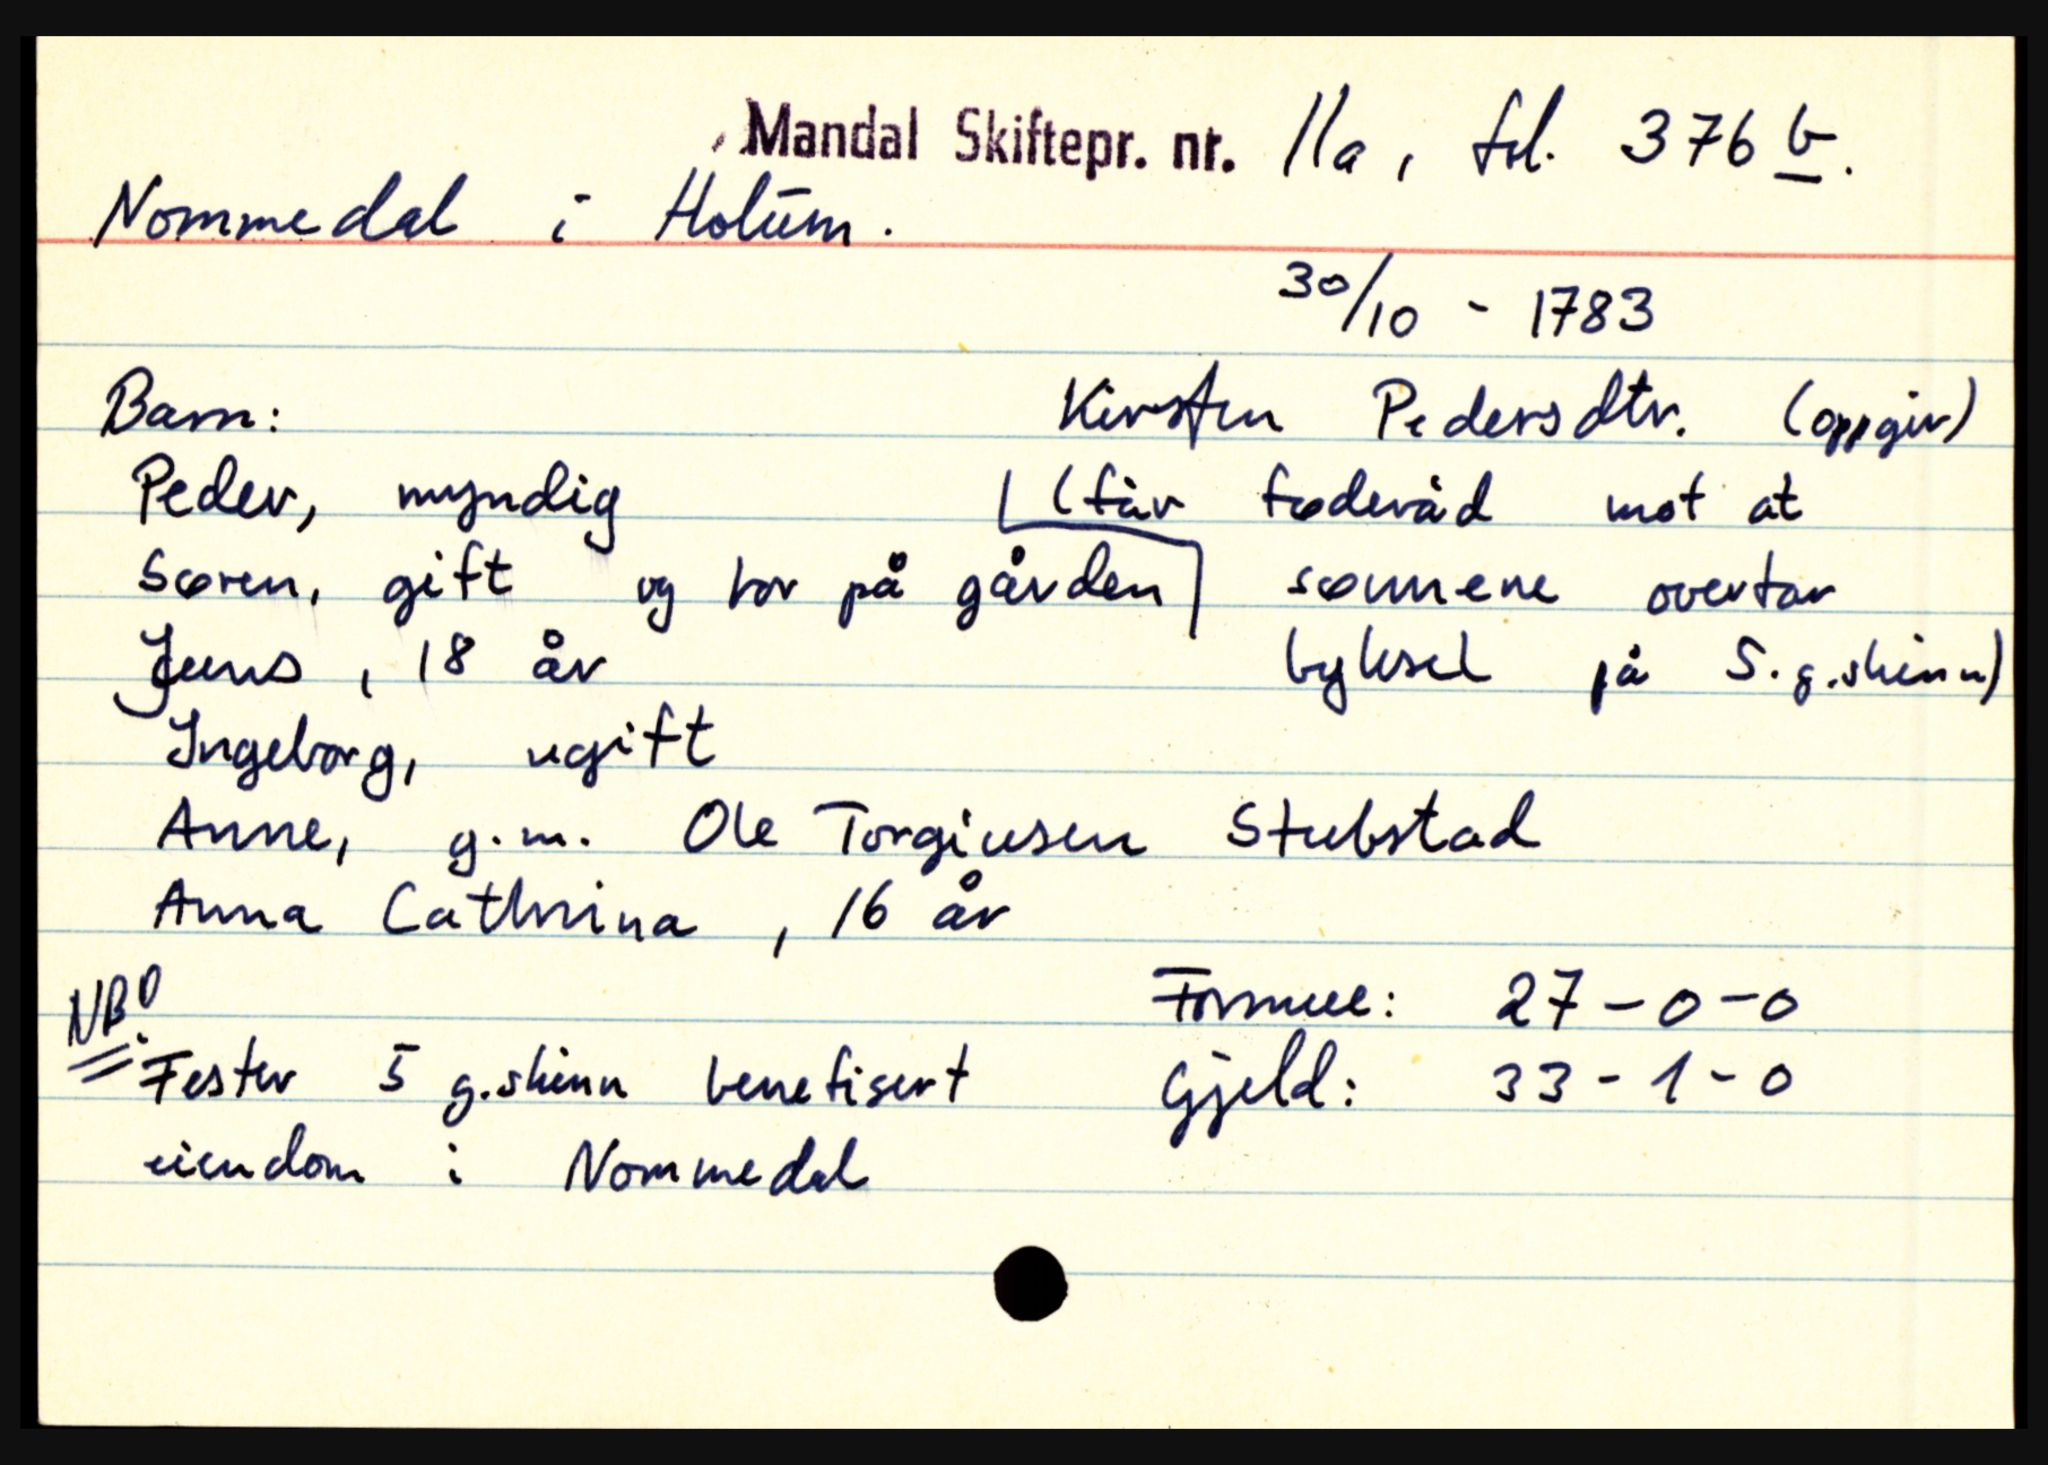 Mandal Skiftepr. nr. 11a, fol. 376 b.
Nommedal i Holum.
30/10 - 1783
Barn: Kirsten Pedersdtr. (oppgir)
Peder, myndig (får føderåd mot at
Søren, gift og bor på gården sønnene overtar
Jens, 18 år byksel på 5. g.skinn)
Ingeborg, ugift
Anne, g.m. Ole Torgiusen Stubstad
Anna Cathrina, 16 år
NB! Formue: 27-0-0
Fester 5 g.skinn benefisert Gjeld: 33-1-0
eiendom i Nommedal